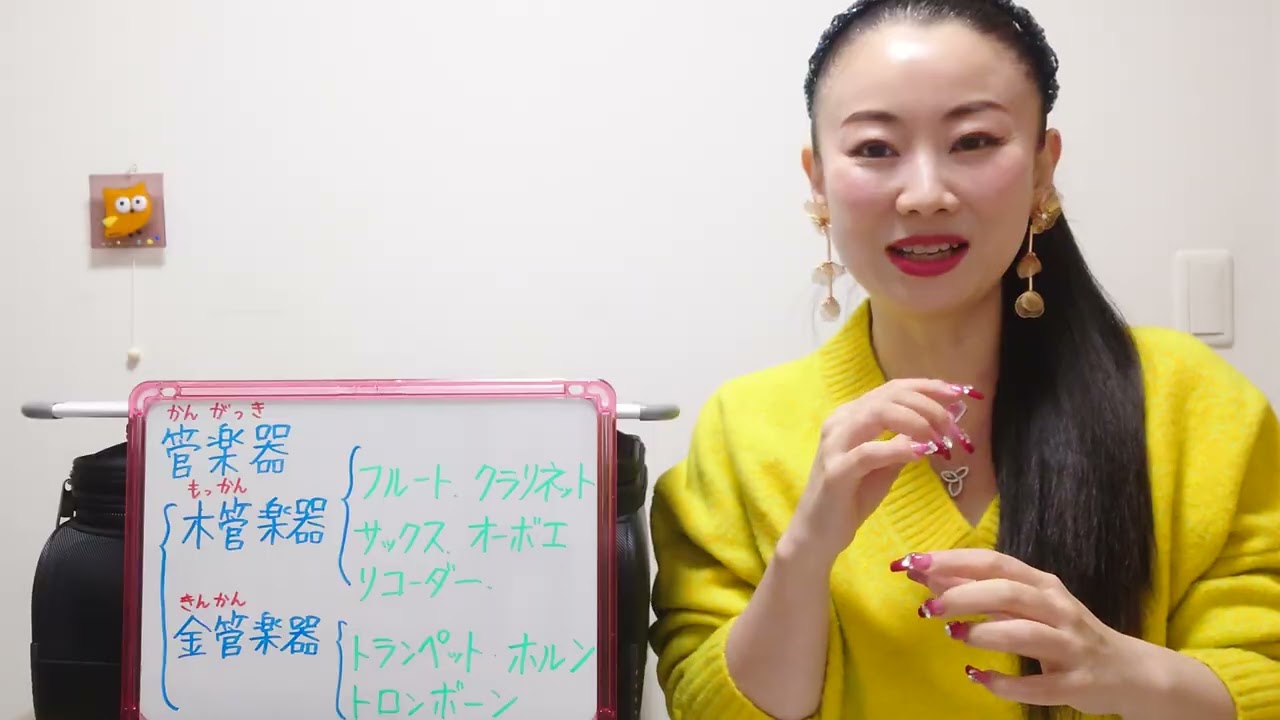 かん がっき
管楽器
もっかん
木管楽器
フルート、クラリネット
サックス、オーボエ
リコーダー、
きんかん
金管楽器
トランペット、ホルン
トロンボーン